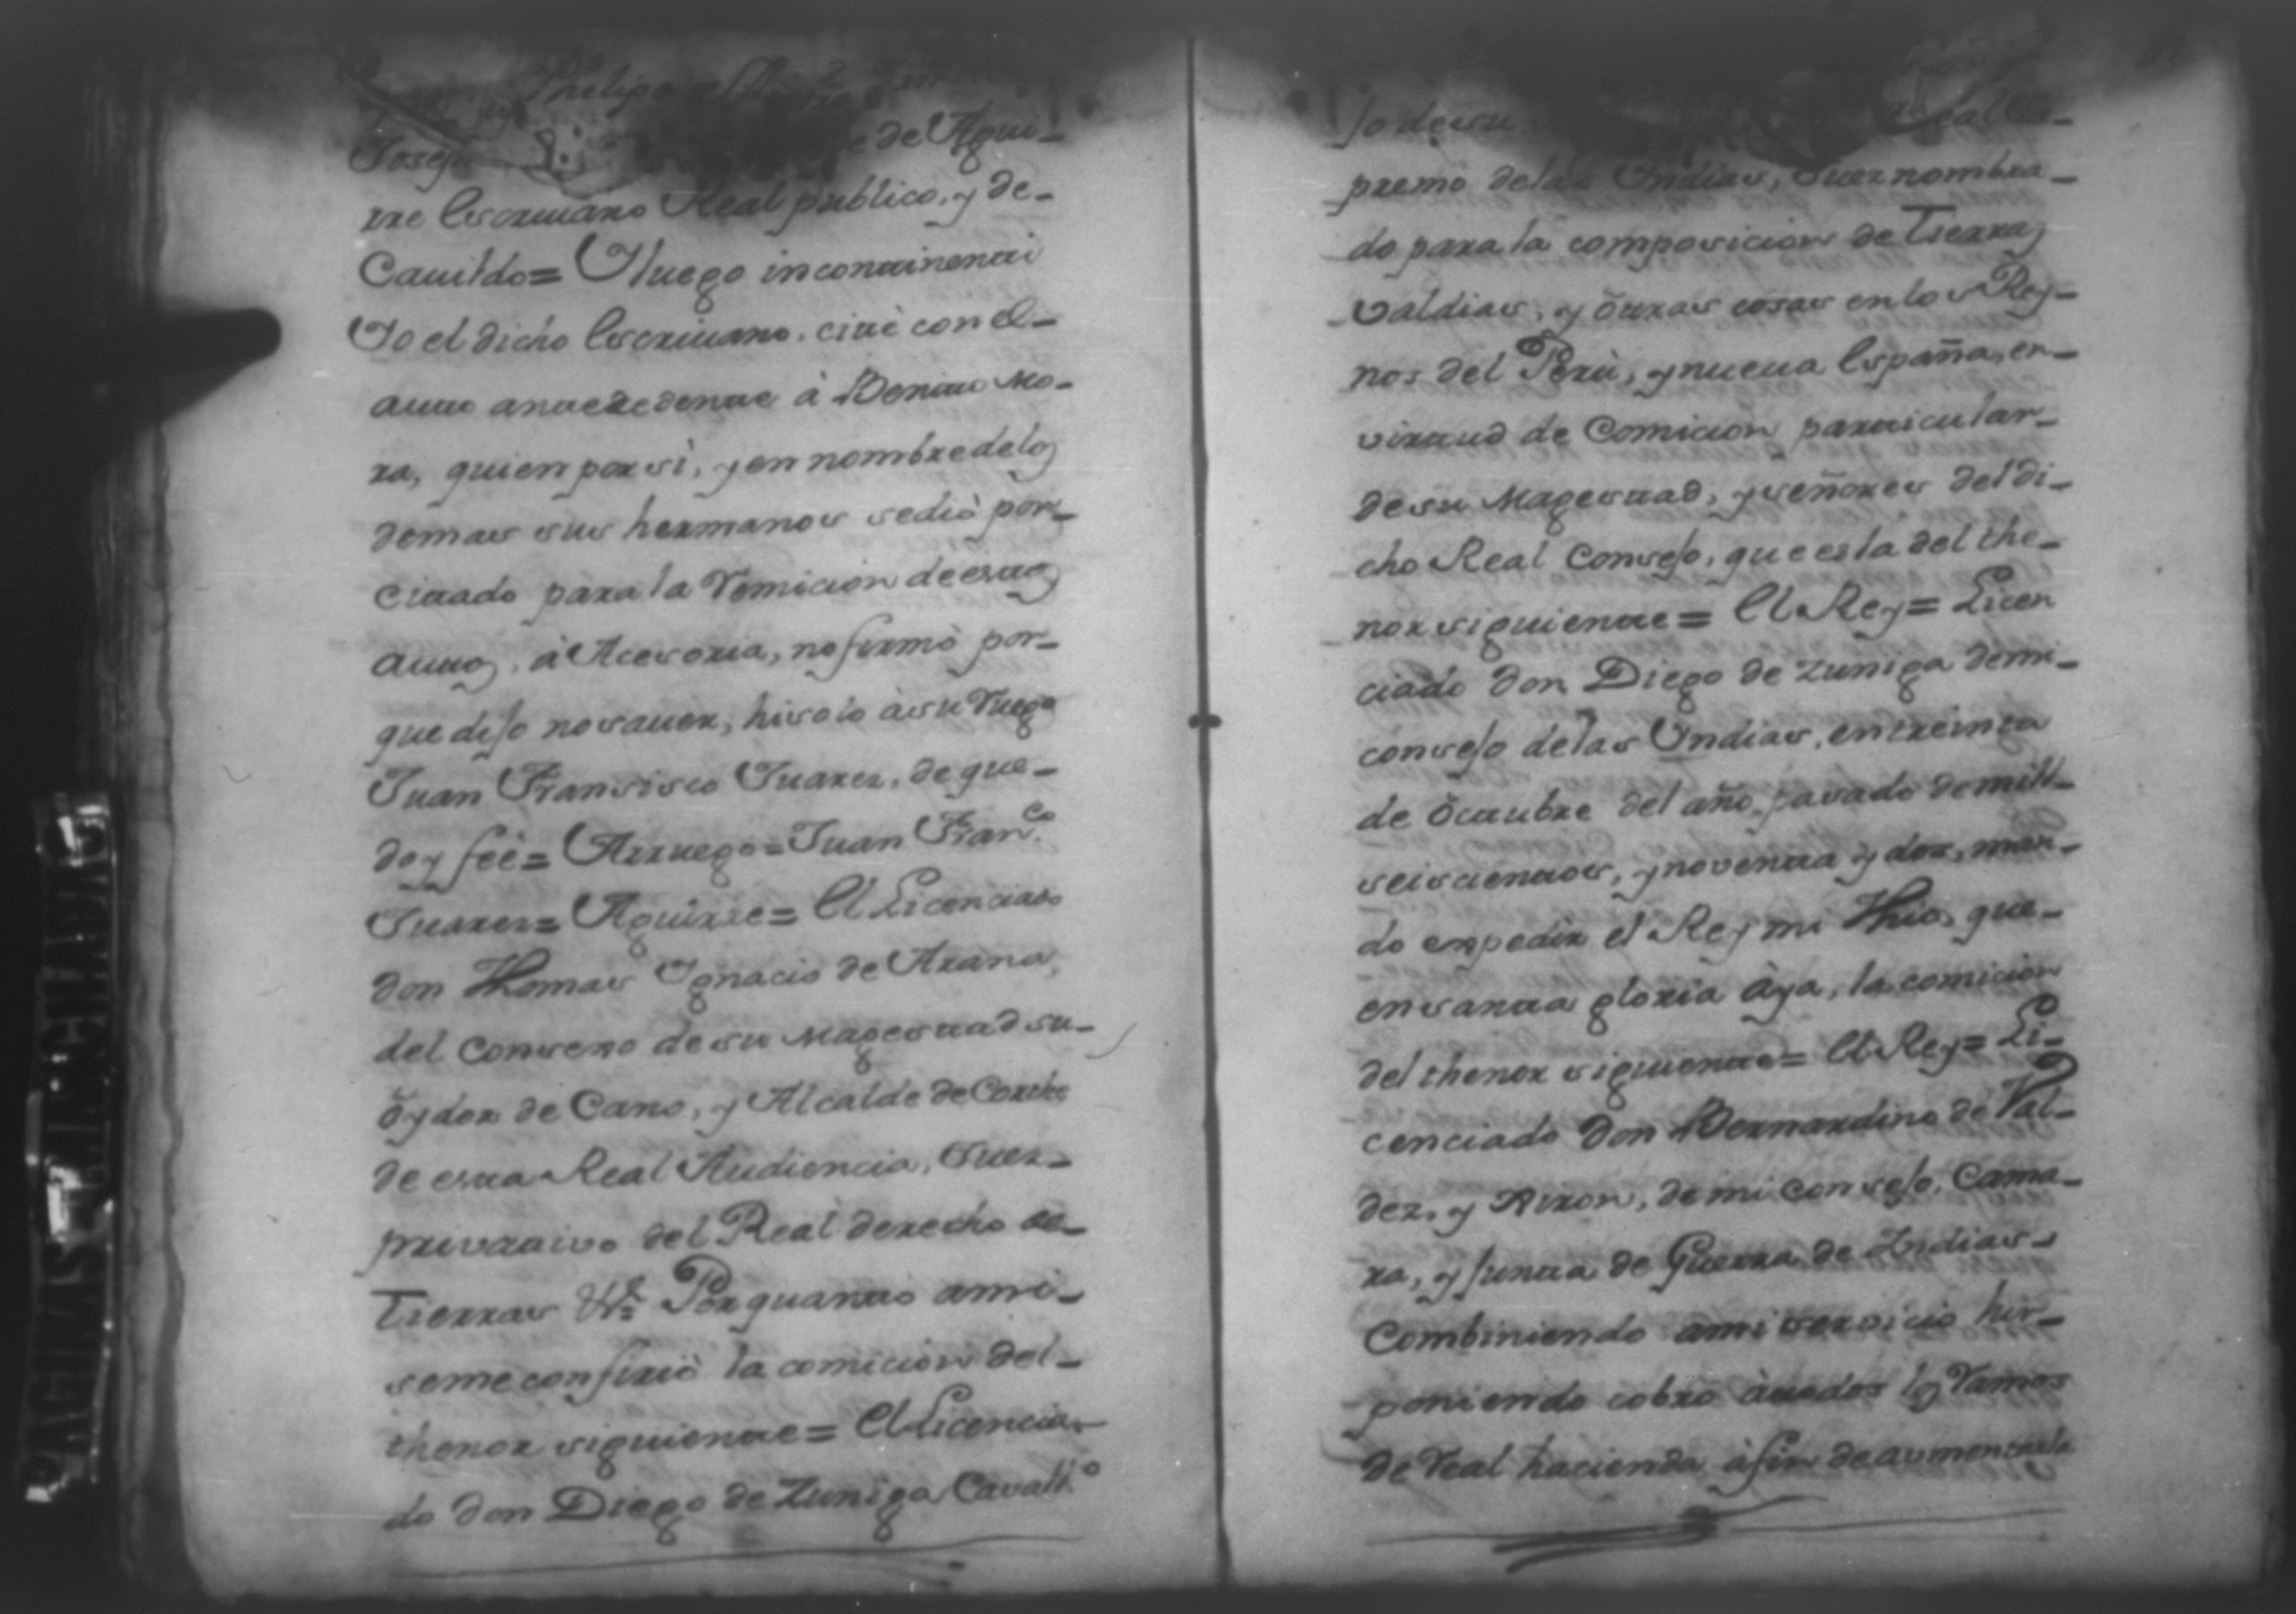 Phelipe
Joseph de Agui-
rre Escriuano Real publico, y de-
Cauildo= Y luego incontinenti
Yo el dicho Escriuano, citè con el-
auto antecedente à Benito Mo-
ra, quien por si, y en nombre de los
demas sus hermanos se diò por-
citado para la remicion de estos
autos, à Acesoria, no firmò por-
que dijo no sauer, hisolo à su ruego
Juan Fransisco Juarez, de que-
doy feè= A ruego= Juan Fran.co
Juarez= Aguirre= El Licenciado
don Thomas Ygnacio de Arana,
del Consexo de su Magestad su-
õydor de Cano, y Alcalde de Corte
de esta Real Audiencia, Juez-
privativo del Real derecho de-
Tierras &a Por quanto a mi-
se me confiriò la comicion del-
thenor siguiente= El Licencia-
do don Diego de Zuniga Cavall.o
jo de su
premo de las Yndias, Juez nombra-
do para la composicion de Tierras
valdias, y õtras cosas en los Rey-
nos del Perù, y nueua España, en-
virtud de Comicion particular-
de su Magestad, y señores del di-
cho Real Consejo, que es la del the-
nor siguiente= El Rey= Licen
ciado don Diego de Zuniga de mi-
consejo de las Yndias, en treinta
de õctubre del año pasado de mill-
seiscientos, y noventa y dos, man-
do expedir el Rey mi Thio, que-
en santa gloria àya, la comicion
del thenor siguiente= El Rey= Li-
cenciado Don Bernardino de Val-
dez, y Xiron, de mi consejo, Cama-
ra, y junta de Guerra de Indias-
Combiniendo a mi servicio hir-
poniendo cobro à todos los ramos
de real hacienda à fin de aumentarla